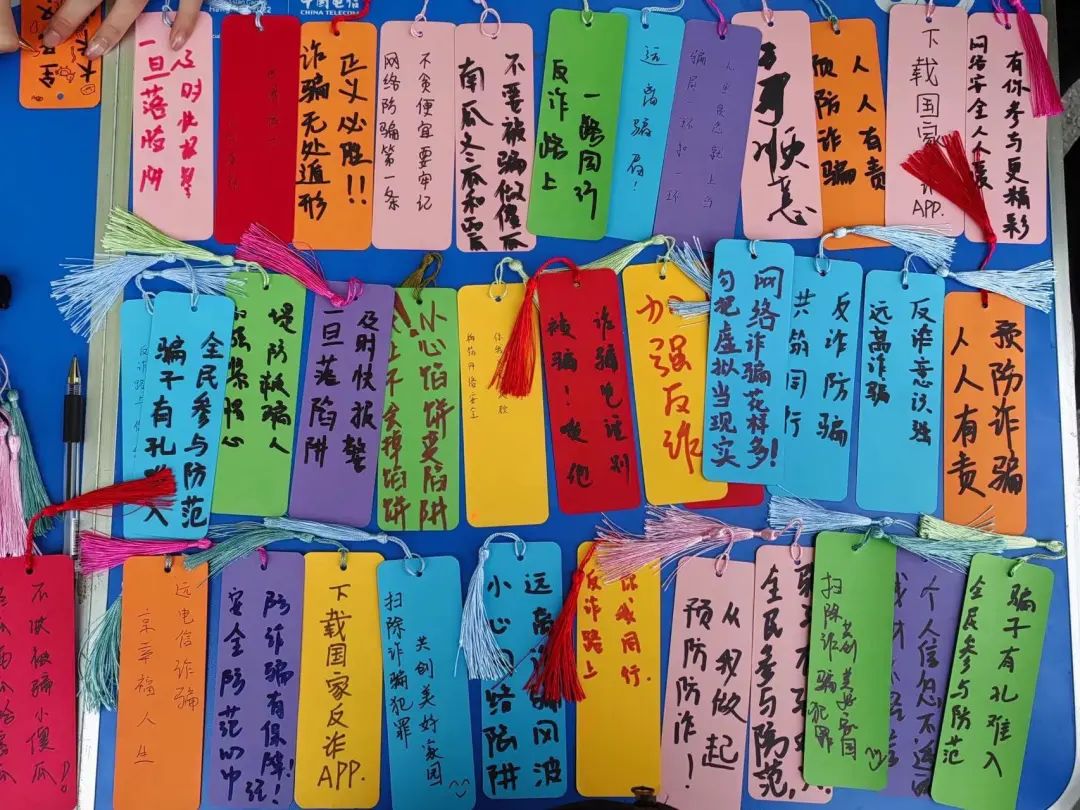 CHINA TELECOM
及时快报警
一旦落陷阱
正义必胜!!
诈骗无处遁形
不贪便宜要牢记
网络防骗第一条
不要被骗做傻瓜
南瓜冬瓜和西瓜
一路同行
反诈路上
远离骗局!
骗局一环扣一环
顺意
人人有责
预防诈骗
下载国家诈APP.
有你参与更精彩
网络安全人人爱
全民参与防范
骗子有孔难入
堤防被骗人
及时快报警
一旦落陷阱
小心馅饼变陷阱
上不会掉馅饼
网络安全
诈骗电话别
被骗!
加强反诈
网络诈骗花样多!
勿把虚拟当现实
反诈防骗
共筑同行
反诈意识强
远离诈骗
预防诈骗
人人有责
不被被骗小傻瓜!
远电信诈骗
京享福人生
防诈骗有保障!
安全防范心中
下载国家反诈APP.
共创美好家园
扫除诈骗犯罪
远离诈骗风波
小心网络陷阱
你我同行.
反诈路上
从我做起
预防诈!
全民参与防范,
共创美好家园
扫除诈骗犯罪
个人信息不透
骗子有孔难入
全民参与防范